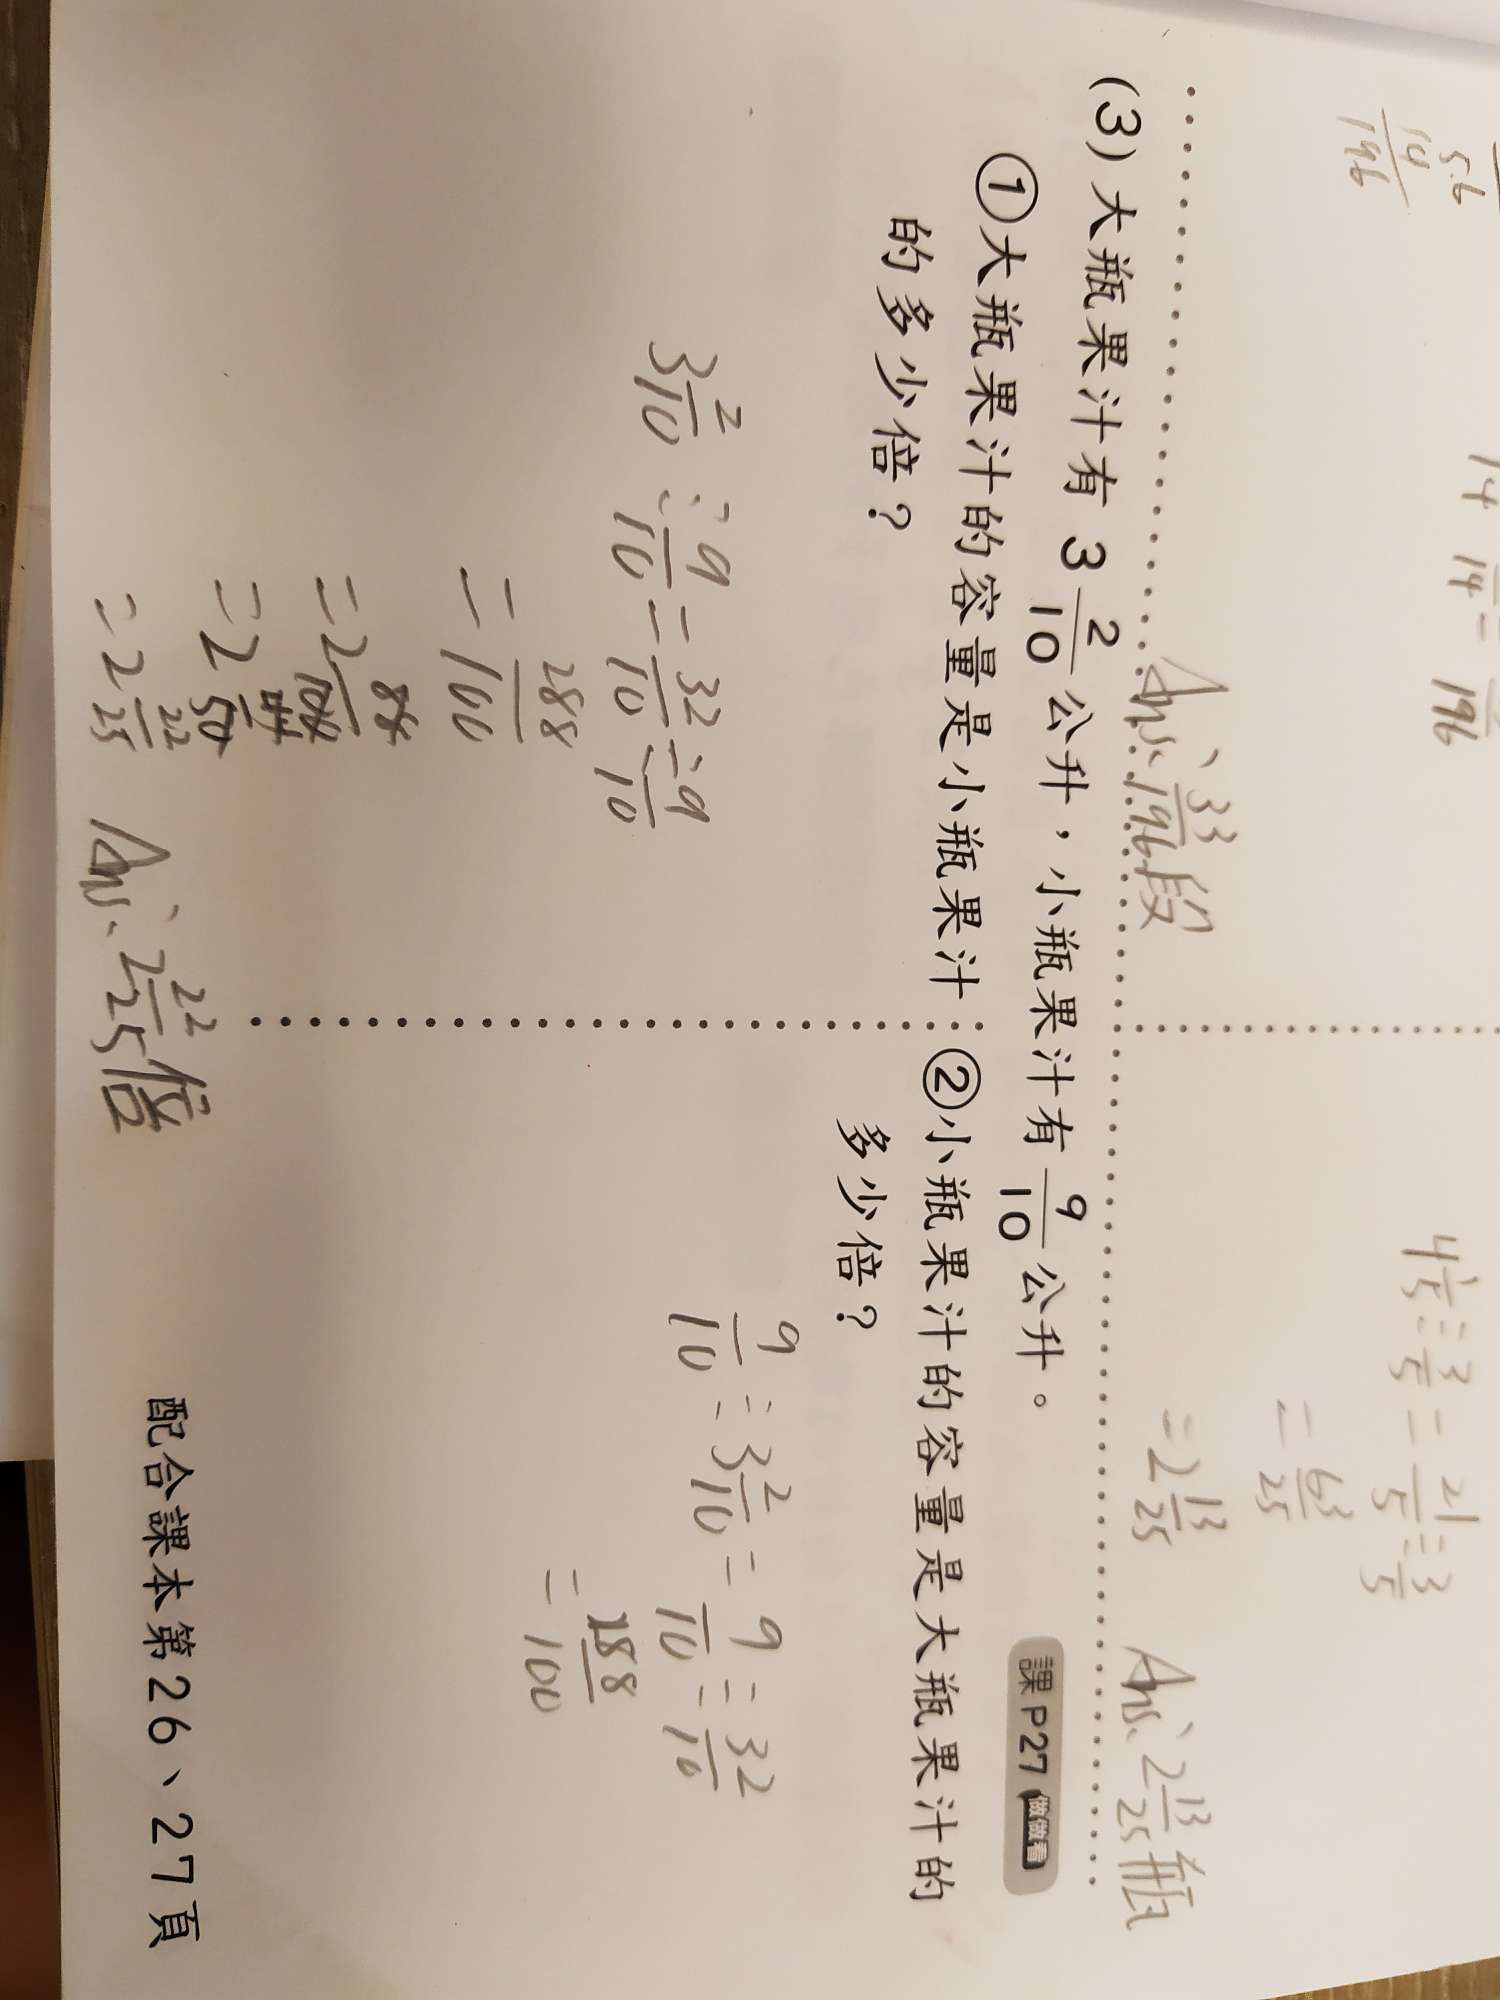 5.6
14
196
14 14 = 196
Ans: 33/196段
4 1/5 ÷ 3/5 = 21/5 ÷ 3/5
= 63/25
= 2 13/25
Ans: 2 13/25瓶
(3) 大瓶果汁有 3 2/10 公升，小瓶果汁有 9/10 公升。
課P27 做做看
①大瓶果汁的容量是小瓶果汁
的多少倍？
3 2/10 ÷ 9/10 = 32/10 ÷ 9/10
= 288/100
= 2
= 2
= 2 22/25
Ans: 2 22/25倍
②小瓶果汁的容量是大瓶果汁的
多少倍？
9/10 ÷ 3 2/10 = 9/10 ÷ 32/10
= 288/100
配合課本第26、27頁